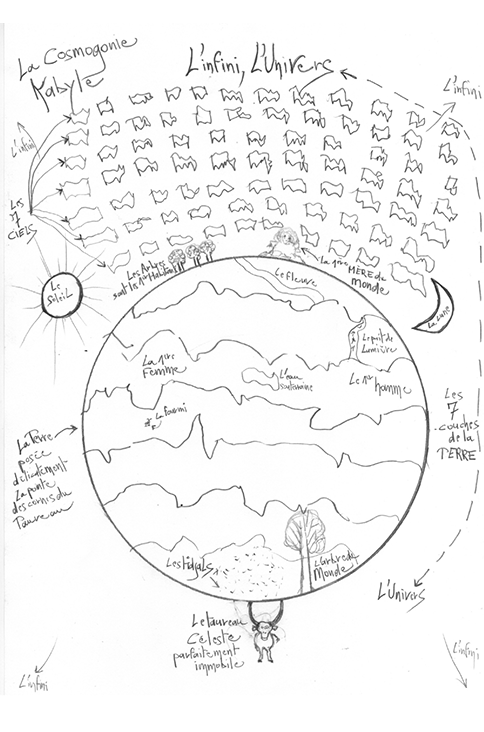 La Cosmogonie
Kabyle
L'infini, L'Univers
L'infini
L'infini
Les
7
CIELS
Le
Soleil
Les Arbres
sont les 1ers Habitants
La 1ère
MÈRE du
monde
Le fleuve
La Lune
La 1ère
Femme
Le puit de
Lumière
L'eau
souterraine
Le 1er homme
La fourmi
Les
7
couches
de la
TERRE
La Terre
posée
délicatement
La pointe
des cornes du
Taureau
Les
L'Arbre du
Monde
L'Univers
Le taureau
Céleste
parfaitement
immobile
L'infini
L'infini